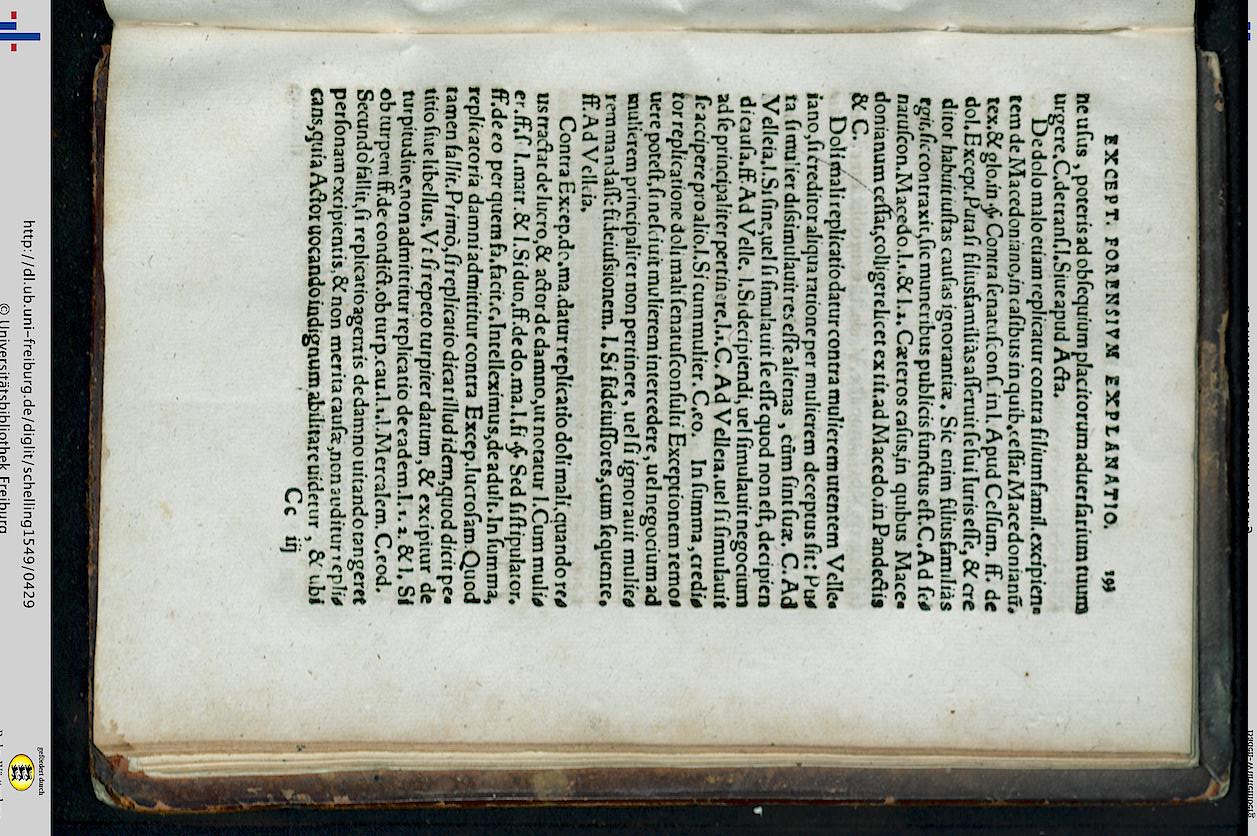 EXCEPT. FORENSIVM EXPLANATIO. 199
ne usus, poteris ad obsequium placitorum aduersarium tuum
urgere. C. de trans. l. Siue apud Acta.
De dolo malo etiam replicatur contra filiumfamil. excipien-
tem de Macedoniano, in casibus in quib. cessat Macedonianũ.
tex. & glo. in §. Contra senatuscons. in l. Apud Celsum. ff. de
dol. Except. Puta si filiusfamiliâs asseruit se sui Iuris esse, & cre
ditor habuit iustas causas ignorantiæ. Sic enim filiusfamiliâs
egit, sic contraxit, sic muneribus publicis functus est. C. Ad se-
natuscon. Macedo. l. 1. & l. 2. Cæteros casus, in quibus Mace-
donianum cessat, colligere licet ex tit. ad Macedo. in Pandectis
& C.
Doli mali replicatio datur contra mulierem utentem Velle-
iano, si creditor aliqua ratione per mulierem deceptus sit: Pu-
ta si mulier dissimulauit res esse alienas, cùm sint suæ. C. Ad
Velleia. l. Si sine, uel si simulauit se esse quod non est, decipien
di causa. ff. Ad Velle. l. Si decipiendi, uel simulauit negocium
ad se principaliter pertinere. l. 1. C. Ad Velleia. uel si simulauit
se accipere pro alio. l. Si cum mulier. C. eo. In summa, credi-
tor replicatione doli mali senatusconsulti Exceptionem remo-
uere potest, si nesciuit mulierem intercedere, uel negocium ad
mulierem principaliter non pertinere, uel si ignorauit mulie-
rem mandasse fideiussionem. l. Si fideiussores, cum sequente.
ff. Ad Velleia.
Contra Excep. do. ma. datur replicatio doli mali, quando re-
us tractat de lucro, & actor de damno, ut notatur l. Cum muli-
er. ff. sl. mat. & l. Si duo. ff. de do. ma. l. fi. §. Sed si stipulator.
ff. de eo per quem fa. facit. c. Intelleximus, de adult. In summa,
replicatoria damni admittitur contra Excep. lucrosam. Quod
tamen fallit. Primò, si replicatio dicat illud idem, quod dicit pe-
titio siue libellus. Vt si repeto turpiter datum, & excipitur de
turpitudine, non admittitur replicatio de eadem. l. 1. 2. & l. Si
ob turpem. ff. de condict. ob turp. cau. l. 1. l. Mercalem. C. eod.
Secundò fallit, si replicatio agentis de damno uitando tangeret
personam excipientis, & non merita causæ, non auditur repli-
cans, quia Actor uocando indignum abilitare uidetur, & ubi
Cc iij
http://dl.ub.uni-freiburg.de/diglit/schelling1549/0429
© Universitätsbibliothek Freiburg
gefördert durch